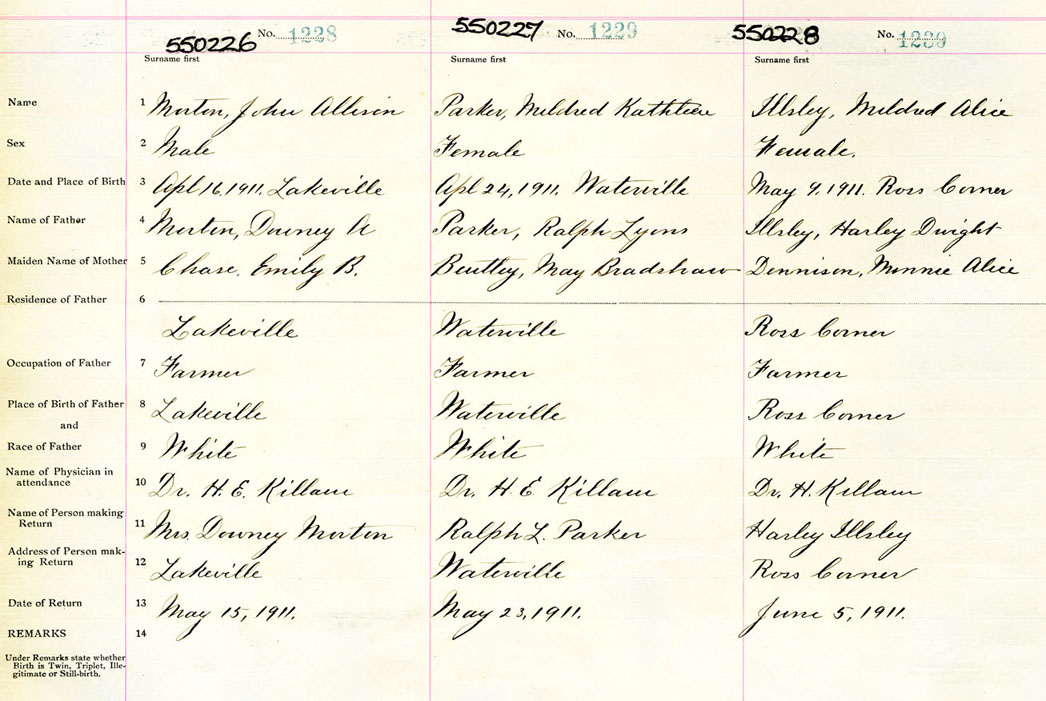 550226 No. 1228 550227 No. 1229 550228 No. 1230
Surname first Surname first Surname first
Name 1 Morton, John Allison Parker, Mildred Kathleen Illsley, Mildred Alice
Sex 2 Male Female Female.
Date and Place of Birth 3 Apl 16, 1911. Lakeville Apl 24, 1911. Waterville May 9, 1911. Ross Corner
Name of Father 4 Morton, Downey A Parker, Ralph Lyons Illsley, Harley Dwight
Maiden Name of Mother 5 Chase, Emily B. Bentley, May Bradshaw Dennison, Minnie Alice
Residence of Father 6
Lakeville Waterville Ross Corner
Occupation of Father 7 Farmer Farmer Farmer
Place of Birth of Father 8 Lakeville Waterville Ross Corner
and
Race of Father 9 White White White
Name of Physician in
attendance 10 Dr. H. E. Killam Dr. H E Killam Dr. H. Killam
Name of Person making
Return 11 Mrs. Downey Morton Ralph L. Parker Harley Illsley
Address of Person mak-
ing Return 12 Lakeville Waterville Ross Corner
Date of Return 13 May 15, 1911. May 23, 1911. June 5, 1911.
REMARKS 14
Under Remarks state whether
Birth is Twin, Triplet, Ille-
gitimate or Still-birth.